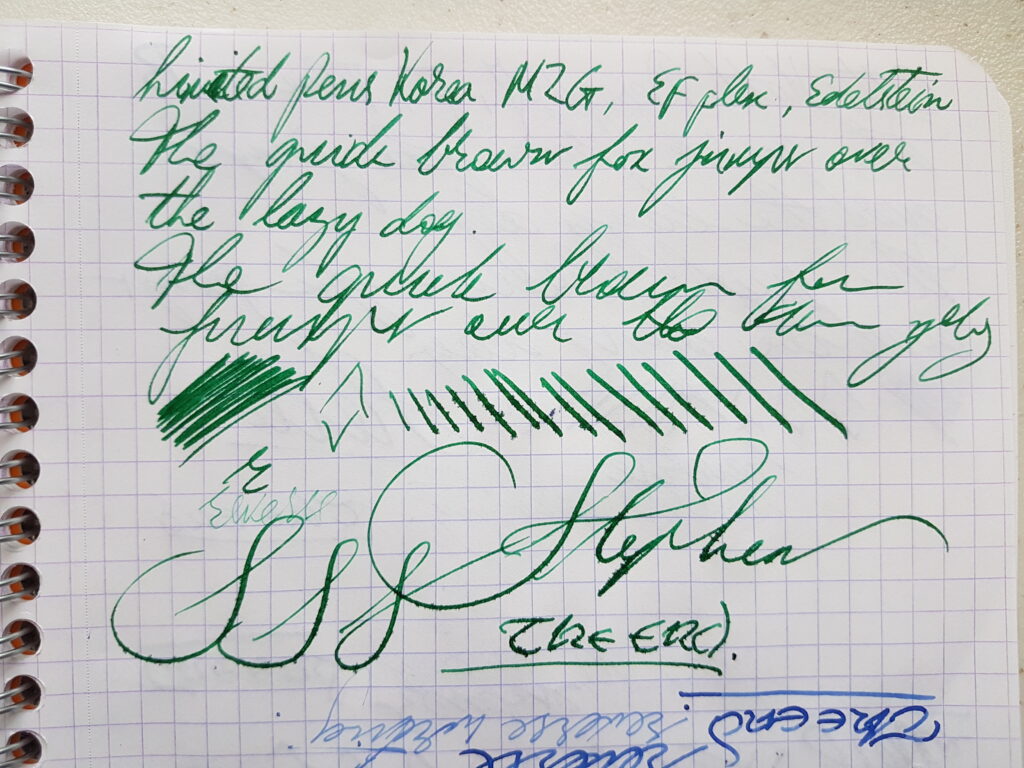 Limited Pens Korea M2G, EF flex, Edelstein
The quick brown fox jumps over
the lazy dog.
The quick brown fox
jumps over the
Reverse
S S S Stephen
THE END.
THE END.
Reverse writing.
Reverse